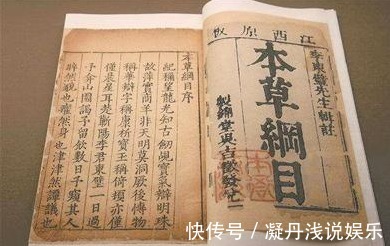 江西原板
李東璧先生輯註
本草綱目
製錦堂
本草綱目序
紀稱望龍光知古劒覘寶氣辨明珠
故萍實商羊非天明莫洞厥後博物
稱華辯字稱康析寶玉稱倚頓亦僅
僅晨星耳楚蘄陽李君東璧一日過
予弇山園謁予留飲數日予窺其人
睟然貌也癯然身也津津然譚議也
快传号 / 凝丹浅说娱乐